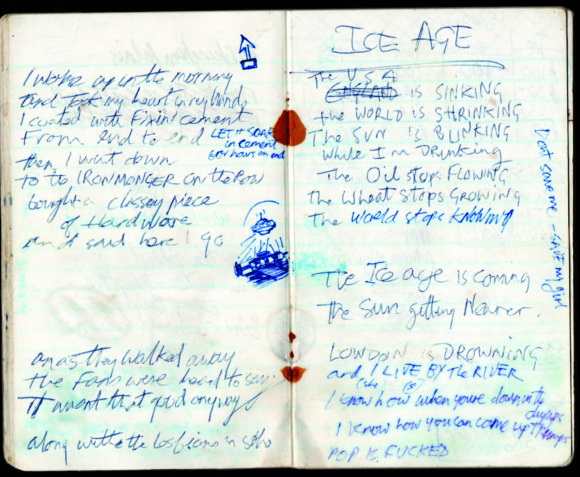 I woke up in the morning
and took my heart in my hands
I coated with Fixin cement
From end to end LET it SOAK
in cement
FOR hours on end
then I went down
to to IRONMONGER on the ROW
bought a classy piece
of Hardware
and said here I go
as they walked away
the fans were heard to say
It wasnt that good anyway
along with the in soho
ICE AGE
The USA
ENGLAND is SINKING
the WORLD is SHRINKING
The SUN is BLINKING
While I'm DRINKING
The Oil stops FLOWING
The Wheat stops GROWING
The World stops KNOWING
Dont save me - save my girl
The Ice age is coming
the Sun getting Nearer.
LONDON is DROWNING
and I LIVE BY the RIVER
I know how when youre down in the
dumps
I know how you can come up Trumps
POP IS FUCKED